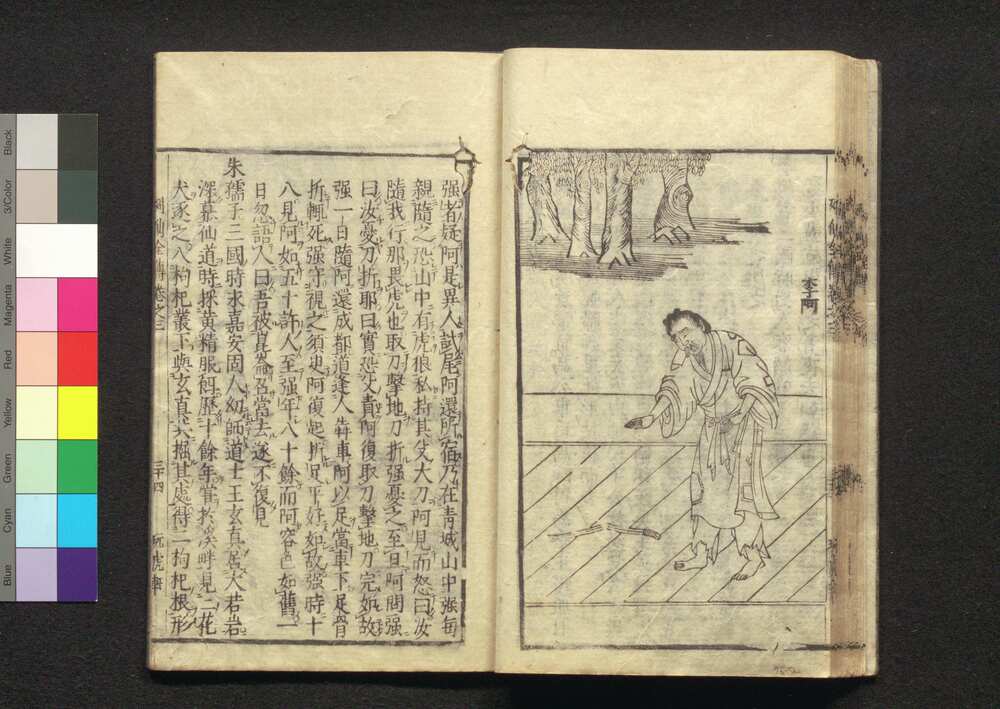 李阿
强者疑阿是異人試尾阿還所宿乃在青城山中强每
親隨之恐山中有虎狼私持其父大刀阿見而怒曰汝
隨我行那畏虎也取刀擊地刀折强憂之至旦阿問强
曰汝憂刀折耶曰實恐父責阿復取刀擊地刀完如故
强一日隨阿還成都道逢人犇車阿以足當車下足骨
折輒死强守視之須臾阿復起折足平好如故强時十
八見阿如五十許人至强年八十餘而阿容色如舊一
日忽語人曰吾被崑崙召當去遂不復見
朱孺子三國時永嘉安固人幼師道士王玄真居大若岩
深慕仙道時採黃精服餌歷十餘年嘗於溪畔見二花
犬逐之入枸杞叢下與玄真共掘其處得一枸杞根形
列仙全傳 卷之三 三十四 玩虎軒
Black
3/Color
White
Magenta
Red
Yellow
Green
Cyan
Blue